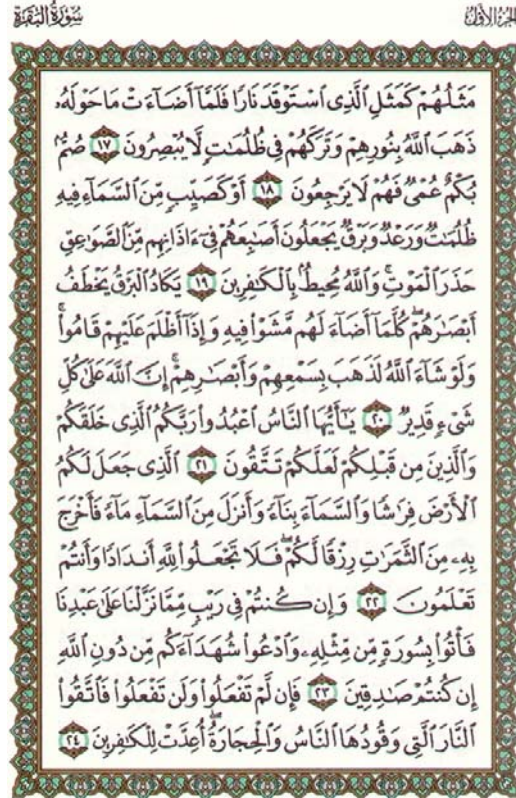 الجزء الأول
سورة البقرة
مَثَلُهُمْ كَمَثَلِ ٱلَّذِى ٱسْتَوْقَدَ نَارًا فَلَمَّآ أَضَآءَتْ مَا حَوْلَهُۥ
ذَهَبَ ٱللَّهُ بِنُورِهِمْ وَتَرَكَهُمْ فِى ظُلُمَٰتٍ لَّا يُبْصِرُونَ ١٧ صُمٌّۢ
بُكْمٌ عُمْىٌ فَهُمْ لَا يَرْجِعُونَ ١٨ أَوْ كَصَيِّبٍ مِّنَ ٱلسَّمَآءِ فِيهِ
ظُلُمَٰتٌ وَرَعْدٌ وَبَرْقٌ يَجْعَلُونَ أَصَٰبِعَهُمْ فِىٓ ءَاذَانِهِم مِّنَ ٱلصَّوَٰعِقِ
حَذَرَ ٱلْمَوْتِ ۚ وَٱللَّهُ مُحِيطٌۢ بِٱلْكَٰفِرِينَ ١٩ يَكَادُ ٱلْبَرْقُ يَخْطَفُ
أَبْصَٰرَهُمْ ۖ كُلَّمَآ أَضَآءَ لَهُم مَّشَوْا۟ فِيهِ وَإِذَآ أَظْلَمَ عَلَيْهِمْ قَامُوا۟ ۚ
وَلَوْ شَآءَ ٱللَّهُ لَذَهَبَ بِسَمْعِهِمْ وَأَبْصَٰرِهِمْ ۚ إِنَّ ٱللَّهَ عَلَىٰ كُلِّ
شَىْءٍ قَدِيرٌ ٢٠ يَٰٓأَيُّهَا ٱلنَّاسُ ٱعْبُدُوا۟ رَبَّكُمُ ٱلَّذِى خَلَقَكُمْ
وَٱلَّذِينَ مِن قَبْلِكُمْ لَعَلَّكُمْ تَتَّقُونَ ٢١ ٱلَّذِى جَعَلَ لَكُمُ
ٱلْأَرْضَ فِرَٰشًا وَٱلسَّمَآءَ بِنَآءً وَأَنزَلَ مِنَ ٱلسَّمَآءِ مَآءً فَأَخْرَجَ
بِهِۦ مِنَ ٱلثَّمَرَٰتِ رِزْقًا لَّكُمْ ۖ فَلَا تَجْعَلُوا۟ لِلَّهِ أَندَادًا وَأَنتُمْ
تَعْلَمُونَ ٢٢ وَإِن كُنتُمْ فِى رَيْبٍ مِّمَّا نَزَّلْنَا عَلَىٰ عَبْدِنَا
فَأْتُوا۟ بِسُورَةٍ مِّن مِّثْلِهِۦ وَٱدْعُوا۟ شُهَدَآءَكُم مِّن دُونِ ٱللَّهِ
إِن كُنتُمْ صَٰدِقِينَ ٢٣ فَإِن لَّمْ تَفْعَلُوا۟ وَلَن تَفْعَلُوا۟ فَٱتَّقُوا۟
ٱلنَّارَ ٱلَّتِى وَقُودُهَا ٱلنَّاسُ وَٱلْحِجَارَةُ ۖ أُعِدَّتْ لِلْكَٰفِرِينَ ٢٤